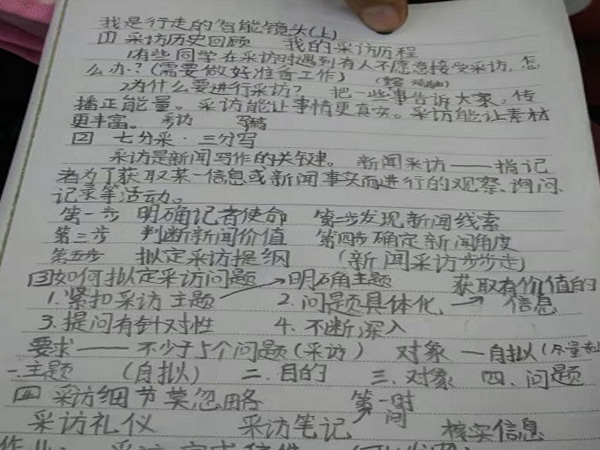 我是行走的智能镜头(上)
[1] 采访历史回顾 我的采访历程
1.有些同学在采访时遇到有人不愿意接受采访,怎
么办?(需要做好准备工作)
2.为什么要进行采访? 把一些事告诉大家。传
播正能量。采访能让事情更真实。采访能让素材
更丰富。 采访 写稿
[2] 七分采·三分写
采访是新闻写作的关键。 新闻采访——指记
者为了获取某一信息或新闻事实而进行的观察、询问、
记录等活动。
第一步 明确记者使命 第二步发现新闻线索
第三步 判断新闻价值 第四步确定新闻角度
第五步 拟定采访提纲 (新闻采访步步走)
[3]如何拟定采访问题 明确主题 获取有价值的
1.紧扣采访主题 2.问题具体化 → 信息
3.提问有针对性 4.不断深入
要求——不少于5个问题(采访) 对象—自拟
一.主题 (自拟) 二.目的 三.对象 四.问题
[四] 采访细节莫忽略 第一时间
采访礼仪 采访笔记 核实信息